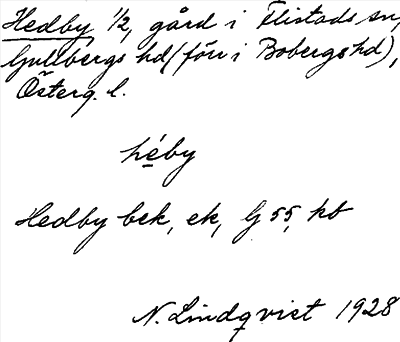 Hedby 1/2, gård i Flistads sn,
Gullbergs hd (förr i Bobergs hd),
Österg. l.
hèby
Hedby bek, ek, G 55, kb
N. Lindqvist 1928